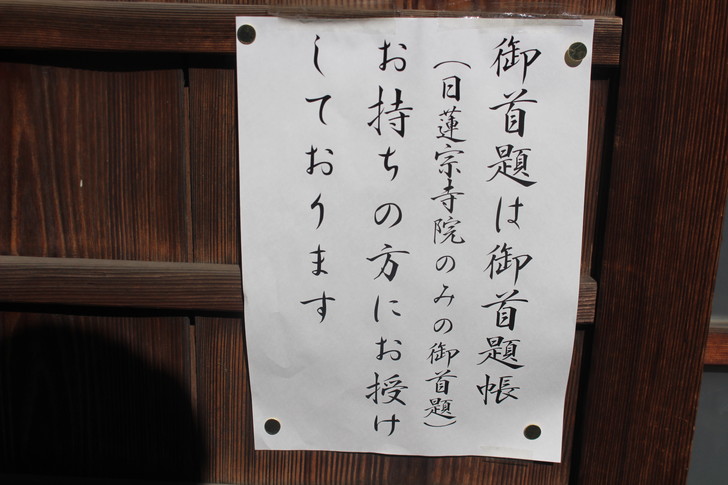 御首題は御首題帳
（日蓮宗寺院のみの御首題）
お持ちの方にお授け
しております